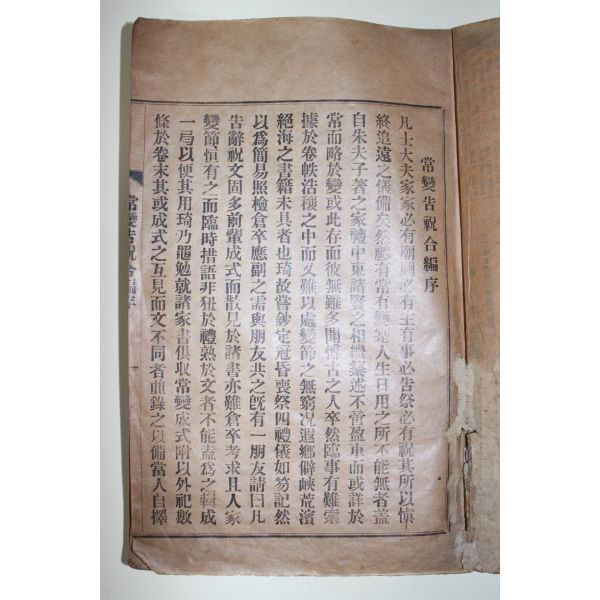 常變告祝合編序
凡士大夫家家必有廟廟必有主有事必告祭必有祝其所以愼
終追遠之儀備矣然禮有常有變是人生日用之所不能無者蓋
自朱夫子著之家禮中東諸賢之相繼纂述不啻盈車而或詳於
常而略於變或此存而彼無雖多聞博古之人卒然臨事有難索
據於卷帙浩穰之中而又難以處變節之無窮況遐鄕僻峽荒濱
絕海之書籍未具者也琦故嘗鈔定冠昏喪祭四禮儀如笏記然
以爲簡易照檢倉卒應副之需與朋友共之旣有一朋友請曰凡
告辭祝文固多前輩成式而散見於諸書亦難倉卒考求且人家
變節恒有之而臨時措語非狃於禮熟於文者不能盍爲之輯成
一弓以便其用琦乃黽勉就諸家書俱收常變成式附以外祀數
條於卷末其或成式之互見而文不同者並錄之以備當人自擇
常變告祝合編序